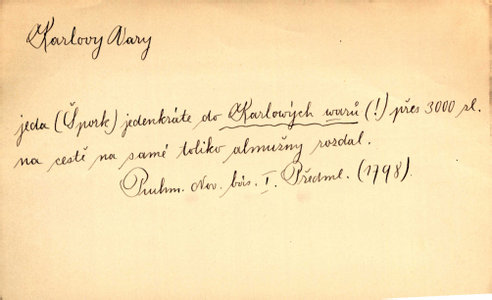 Karlovy Vary
jeda (Špork) jedenkráte do Karlowých warů (!) přes 3000 zl.
na cestě na samé toliko almužny rozdal.
Puchm. Nov. bás. I. Předml. (1798).